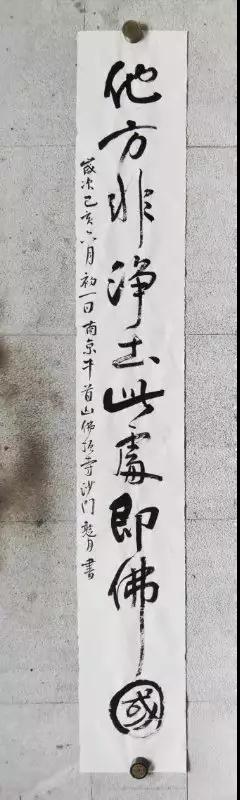 他方非净土此處即佛國
歲次己亥六月初一日南京牛首山佛頂寺沙门月書